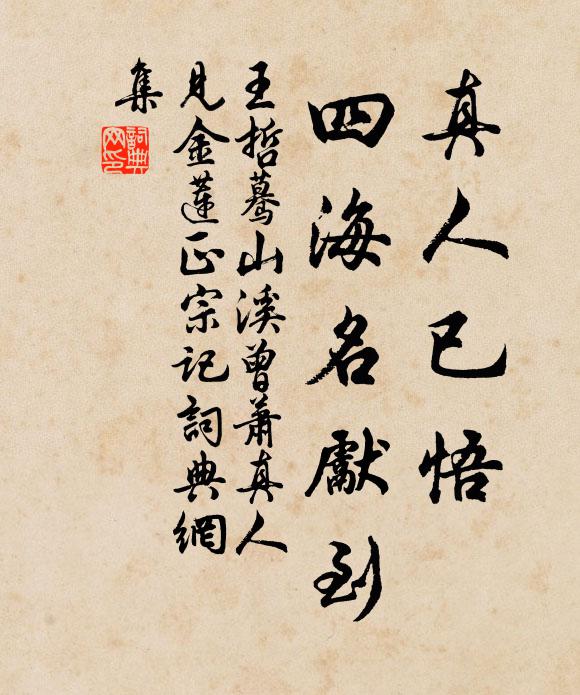 真人已悟
四海名獻到
王哲蓦山溪曾蕭真人
見金蓮正宗記詞典網
集
詞典
网印